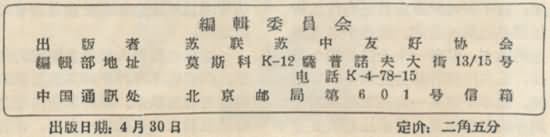 編輯委員会
出版者 苏联苏中友好协会
編輯部地址 莫斯科K-12薩普諾夫大街13/15号
电話K-4-78-15
中国通訊处 北京邮局第601号信箱
出版日期: 4月30日 定价: 二角五分